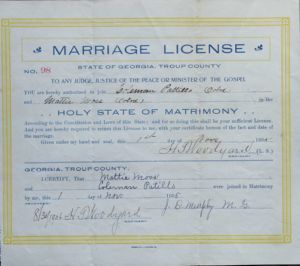 MARRIAGE LICENSE
STATE OF GEORGIA, TROUP COUNTY
NO. 98
TO ANY JUDGE, JUSTICE OF THE PEACE OR MINISTER OF THE GOSPEL
You are hereby authorized to join Coleman Pattillo
and Mattie Moss in the
HOLY STATE OF MATRIMONY
According to the Constitution and Laws of this State; and for so doing this shall be your sufficient License. And
you are hereby required to return this License to me, with your certificate hereon of the fact and date of
the marriage.
Given under my hand and seal, this 1st day of Nov
H.T. Woodyard (L.S.)
GEORGIA, TROUP COUNTY.
I CERTIFY, That Mattie Moss
and Coleman Patillo were joined in Matrimony
by me, this 1 day of Nov
H T Woodyard J. C. Murphy M. G.